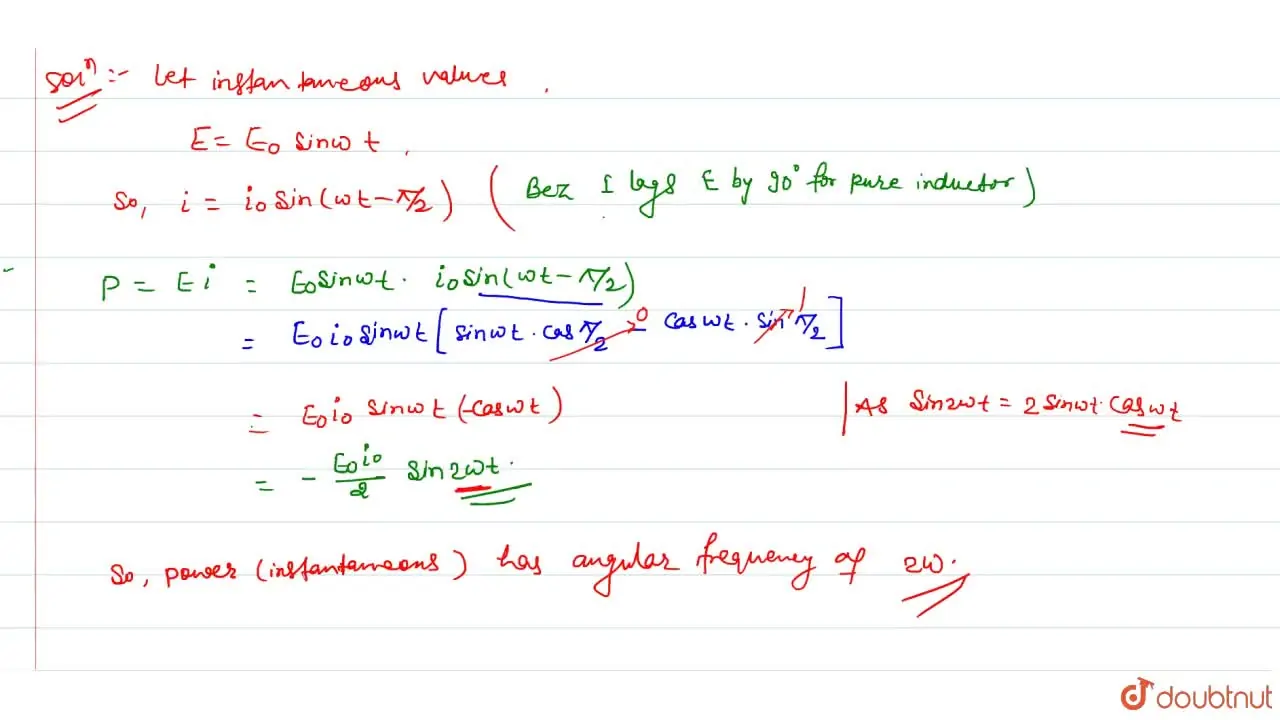 Solⁿ :- Let instantaneous values .
E = E₀ sinω t .
So, i = i₀ sin(ωt - π/2) ( Bcz I lags E by 90° for pure inductor )
P = E i = E₀ sinωt . i₀ sin(ωt - π/2)
= E₀ i₀ sinωt [ sinωt . cos π/2 0 - cosωt . sin π/2 1 ]
= E₀ i₀ sinωt (-cosωt) | As sin2ωt = 2 sinωt . cosωt
= - E₀ i₀ / 2 sin2ωt .
So, power (instantaneous) has angular frequency of 2ω .
doubtnut